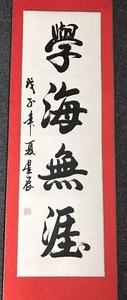 學海無涯
戊子年夏